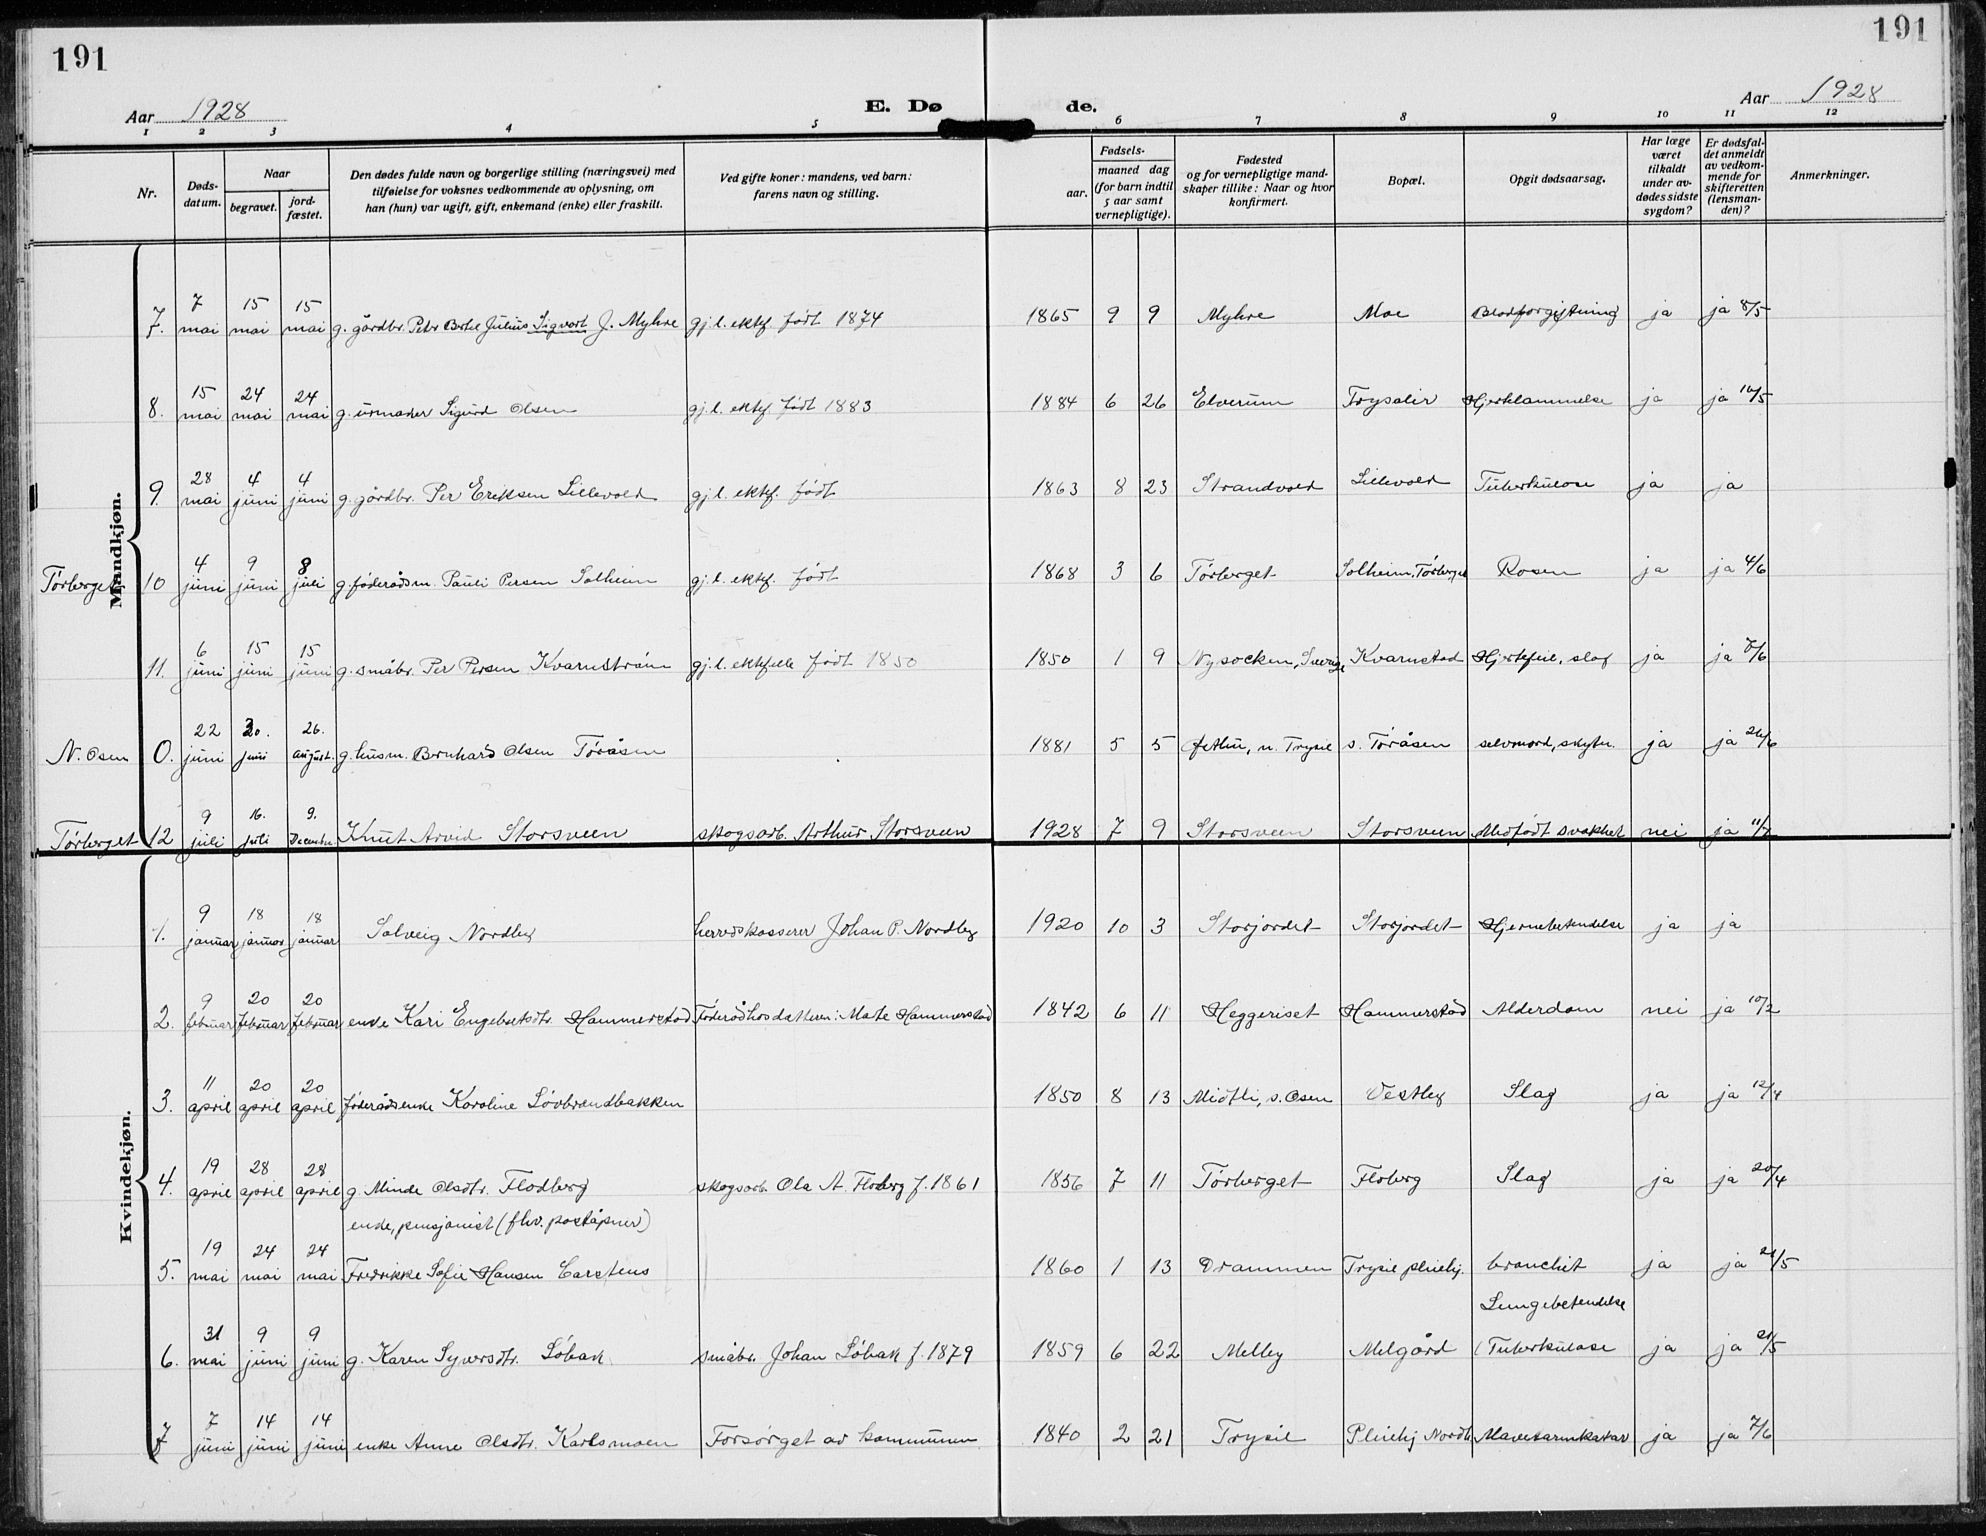 191
191
Aar 1928
E. Dø
de.
Aar 1928
1 2 3 4 5 6 7 8 9 10 11 12
Nr.
Døds-
datum.
Naar
begravet.
jord-
fæstet.
Den dødes fulde navn og borgerlige stilling (næringsvei) med
tilføielse for voksnes vedkommende av oplysning, om
han (hun) var ugift, gift, enkemand (enke) eller fraskilt.
Ved gifte koner: mandens, ved barn:
farens navn og stilling.
Fødsels-
aar.
maaned dag
(for barn indtil
5 aar samt
vernepligtige).
Fødested
og for vernepligtige mand-
skaper tillike: Naar og hvor
konfirmert.
Bopæl.
Opgit dødsaarsag.
Har læge
været
tilkaldt
under av-
dødes sidste
sygdom?
Er dødsfal-
det anmeldt
av vedkom-
mende for
skifteretten
(lensman-
den)?
Anmerkninger.
Mandkjøn.
7. 7 mai 15 mai 15 mai g. gårdbr. Petr Bertel Julius Sigvart J. Myhre gj. l. ektef. født 1874 1865 9 9 Myhre Moe Blodforgiftning ja ja 8/5
8. 15 mai 24 mai 24 mai g. urmaker Sigurd Olsen gj. l. ektef. født 1883 1884 6 26 Elverum Trysilir Hjertelammelse ja ja 16/5
9. 28 mai 4 juni 4 juni g. gårdbr. Per Eriksen Lillevold gj. l. ektef. født 1863 8 23 Strandvold Lillevold Tuberkulose ja ja
Törberget 10 4 juni 9 juni 8 juli g. föderådsm. Pauli Persen Solheim gj. l. ektef. født 1868 3 6 Törberget Solheim, Törberget Rosen ja ja 4/6
11. 6 juni 15 juni 15 juni g. småbr. Per Persen Kvarnström gj. l. ektefelle født 1850 1850 1 9 Nysocken, Sverige Kvarnstad Hjertefeil, slag ja ja 7/6
N. Osen 0. 22 juni 30. juni 26. august. g. husm. Bernhard Olsen Töråsen 1881 5 5 n. Trysil s. Töråsen selvmord, skytn. ja ja 26/6
Törberget 12 9 juli 16. juli 9. Decembr. Knut Arvid Storsveen skogsarb. Arthur Storsveen 1928 7 9 Storsveen Storsveen Medfødt svakhet nei ja 11/7
Kvindekjøn.
1. 9 januar 18 januar 18 januar Solveig Nordby herredskasserer Johan P. Nordby 1920 10 3 Storjordet Storjordet Hjernebetendelse ja ja
2. 9 februar 20 februar 20 februar enke Kari Engebretsdtr. Hammerstad Föderåd hos datteren: Mate Hammerstad 1842 6 11 Heggeriset Hammerstad Alderdom nei ja 10/2
3. 11 april 20 april 20 april föderådsenke Karoline Lövbrandbakken 1850 8 13 Midtli, s. Osen Vestby Slag ja ja 12/4
4. 19 april 28 april 28 april g. Minde Olsdtr. Flodberg skogsarb. Ola A. Floberg f. 1861 1856 7 11 Törberget Floberg Slag ja ja 20/4
enke, pensjonist (fhv. poståpner)
5. 19 mai 24 mai 24 mai Fredrikke Sofie Hansen Carstens 1860 1 13 Drammen Trysil pleiehj. bronchit ja ja 21/5
Lungebetendelse
6. 31 mai 9 juni 9 juni g. Karen Syversdtr. Löbak småbr. Johan Löbak f. 1879 1859 6 22 Melby Melgård (Tuberkulose ja ja 31/5
7 7 juni 14 juni 14 juni enke Anne Olsdtr. Karlsmoen Forsörget av kommunen 1840 2 21 Trysil Pleiehj Nordb. Mavetarmkatar ja ja 7/6